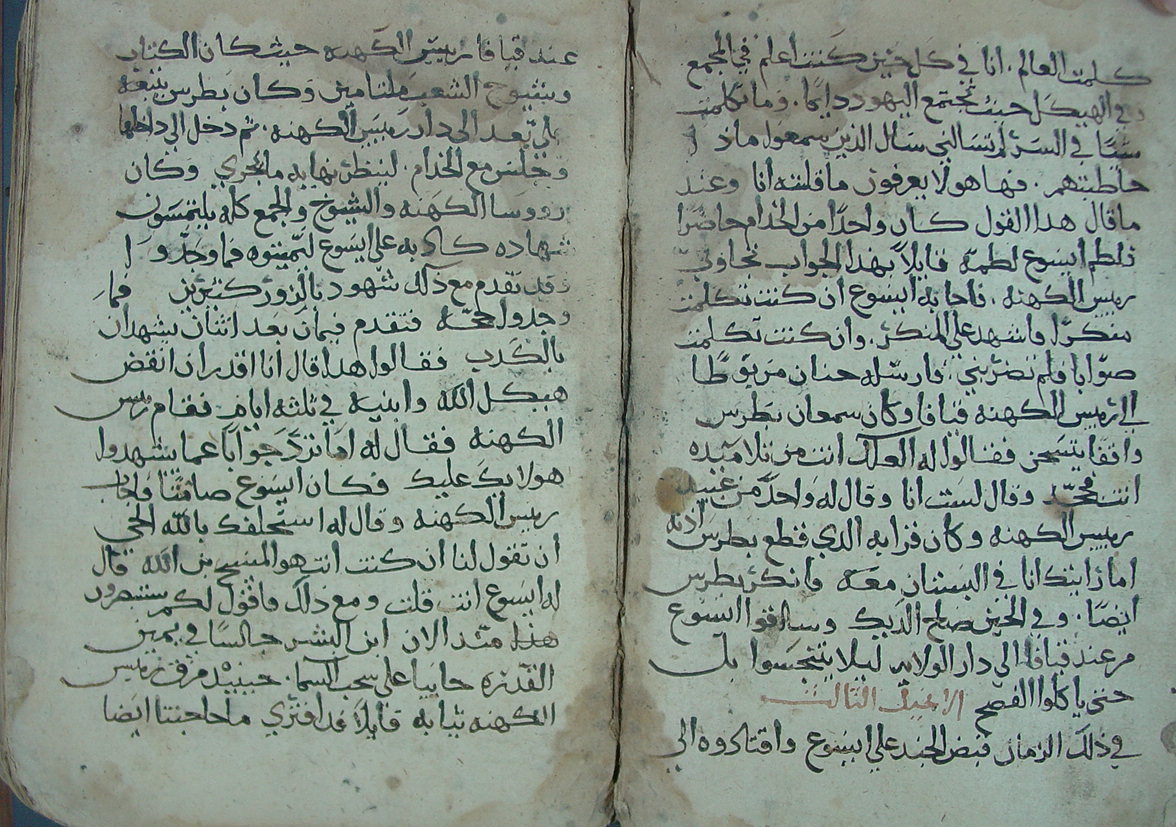 كلمت العالم. انا في كل حين كنت اعلم في المجمع
وفي الهيكل حيث تجتمع اليهود دايما. وما تكلمت
شيا في السر لم تسالني سال الذين سمعوا ماذا
خاطبتهم. فهاهولا يعرفون ما قلته انا وعند
ما قال هدا القول كان واحدا من الخدام حاضرا
فلطم ايسوع لطمه قايلا بهذا الجواب تجاوب
رييس الكهنه. فاجابه ايسوع ان كنت تكلمت
منكرا فاشهد علي المنكر. وان كنت تكلمت
صوابا فلم تضربني. فارسله حنان مربوطا
الي رييس الكهنه قيافا وكان سمعان بطرس
واقفا يتسخن فقالوا له لعلك انت من تلاميده
انت فجحد وقال لست انا وقال له واحد من عبيد
رييس الكهنه وكان قرابه الدي قطع بطرس ادنه
اما رايتك انا في البستان معه فانكر بطرس
ايضا. وفي الحين صاح الديك وساقوا ايسوع
من عند قيافا الي دار الولايه ليلا يتنجسوا بل
حتي ياكلوا الفصح الانجيل الثالث
في ذلك الزمان قبض الجند علي ايسوع واقتادوه الي
عند قيافا رييس الكهنه حيث كان الكتاب
وشيوخ الشعب ملتامين وكان بطرس يتبعه
علي بعد الي دار رييس الكهنه. ثم دخل الي داخلها
وجلس مع الخدام. لينظر نهايه ما يجري وكان
رووسا الكهنه والشيوخ والجمع كله يلتمسون
شهاده كادبه علي ايسوع ليميتوه فما وجدوا
وقد تقدم مع دلك شهود بالزور كتيرين فما
وجدوا حجه فتقدم فيما بعد اتنان يشهدان
بالكدب فقالوا هدا قال انا اقدر ان انقض
هيكل الله وابنيه في تلته ايام فقام رييس
الكهنه فقال له اما ترد جوابا عما يشهدوا
هولايك عليك فكان ايسوع صامتا فاجاب
رييس الكهنه وقال له استحلفك بالله الحي
ان تقول لنا ان كنت انت هو المسيح بن الله قال
له ايسوع انت قلت ومع دلك فاقول لكم ستبصرون
هدا مند الان ابن البشر جالسا في يمين
القدره جاييا علي سحب السما. حينيد مزق رييس
الكهنه تيابه قايلا قد افتري ما حاجتنا ايضا